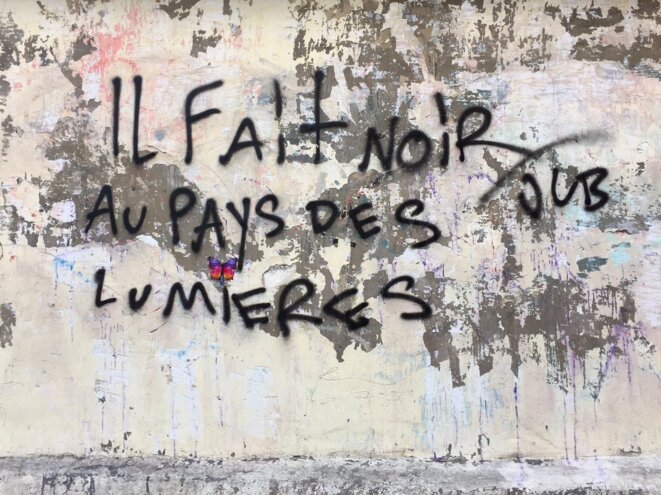 IL FAit NOIR
AU PAYS DES
LUMIERES
JUB